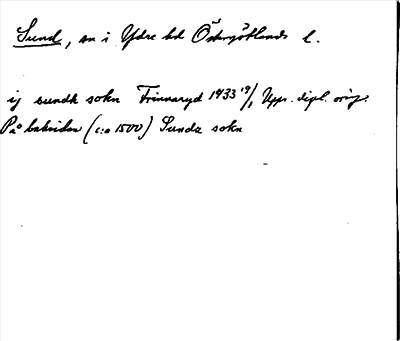 Sund, sn i Ydre hd Östergötlands l.
ij sundh sokn Trinnaryd 1433 19/1 Upps. dipl. orig.
På baksidan (c:a 1500) Sunda sokn